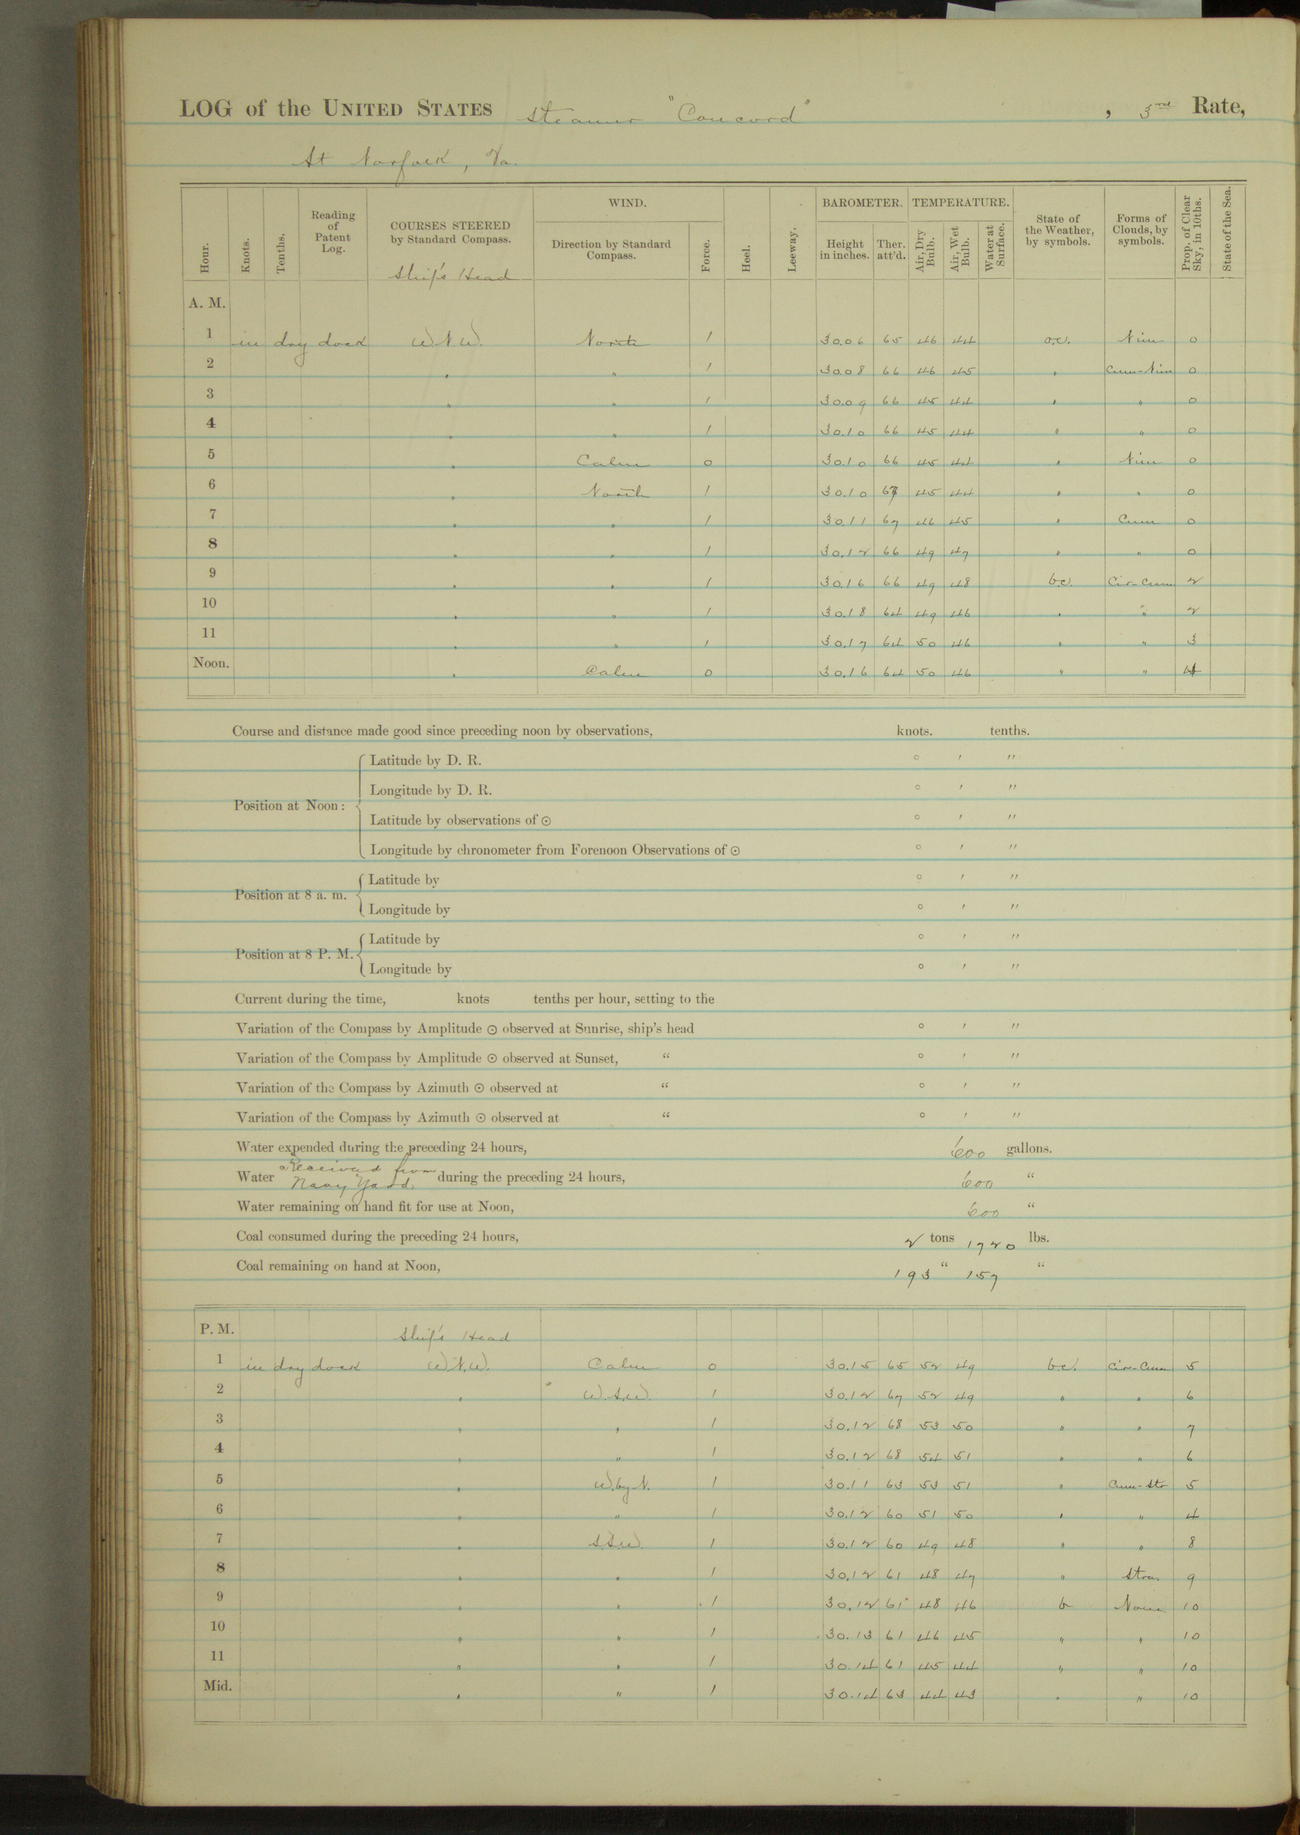 LOG of the UNITED STATES Steamer "Concord", 3rd Rate,
At Norfolk, Va.
Hour. Knots. Tenths. Reading of Patent Log. COURSES STEERED by Standard Compass. WIND. Direction by Standard Compass. Force. Heel. Leeway. BAROMETER. Height in inches. Ther. att'd. TEMPERATURE. Air, Dry Bulb. Air, Wet Bulb. Water at Surface. State of the Weather, by symbols. Forms of Clouds, by symbols. Prop. of Clear Sky, in 10ths. State of the Sea.
Ship's Head
A. M.
1 in dry dock W.N.W. North 1 30.06 65 46 44 o.c. Nim 0
2 " " 1 30.08 66 46 45 " Cum-Nim 0
3 " " 1 30.09 66 45 44 " " 0
4 " " 1 30.10 66 45 44 " " 0
5 " Calm 0 30.10 66 45 44 " Nim 0
6 " North 1 30.10 67 45 44 " " 0
7 " " 1 30.11 67 46 45 " Cum 0
8 " " 1 30.12 66 49 47 " " 0
9 " " 1 30.16 66 49 48 b.c. Cir-Cum 2
10 " " 1 30.18 64 49 46 " " 2
11 " " 1 30.17 64 50 46 " " 3
Noon. " Calm 0 30.16 64 50 46 " " 4
Course and distance made good since preceding noon by observations, knots. tenths.
Position at Noon:
Latitude by D. R. ° ′ ″
Longitude by D. R. ° ′ ″
Latitude by observations of ⊙ ° ′ ″
Longitude by chronometer from Forenoon Observations of ⊙ ° ′ ″
Position at 8 a. m.
Latitude by ° ′ ″
Longitude by ° ′ ″
Position at 8 P. M.
Latitude by ° ′ ″
Longitude by ° ′ ″
Current during the time, knots tenths per hour, setting to the
Variation of the Compass by Amplitude ⊙ observed at Sunrise, ship's head ° ′ ″
Variation of the Compass by Amplitude ⊙ observed at Sunset, " ° ′ ″
Variation of the Compass by Azimuth ⊙ observed at " ° ′ ″
Variation of the Compass by Azimuth ⊙ observed at " ° ′ ″
Water expended during the preceding 24 hours, 600 gallons.
Water Received from Navy Yard. during the preceding 24 hours, 600 "
Water remaining on hand fit for use at Noon, 600 "
Coal consumed during the preceding 24 hours, 2 tons 1720 lbs.
Coal remaining on hand at Noon, 193 " 157 "
P. M. Ship's Head
1 in dry dock W.N.W. Calm 0 30.15 65 52 49 b.c. Cir-Cum 5
2 " W.S.W. 1 30.12 67 52 49 " " 6
3 " " 1 30.12 68 53 50 " " 7
4 " " 1 30.12 68 54 51 " " 6
5 " W. by N. 1 30.11 63 53 51 " Cum-Str 5
6 " " 1 30.12 60 51 50 " " 4
7 " S.S.W. 1 30.12 60 49 48 " " 8
8 " " 1 30.12 61 48 47 " Stra. 9
9 " " 1 30.12 61 48 46 b None 10
10 " " 1 30.13 61 46 45 " " 10
11 " " 1 30.14 61 45 44 " " 10
Mid. " " 1 30.14 63 44 43 " " 10